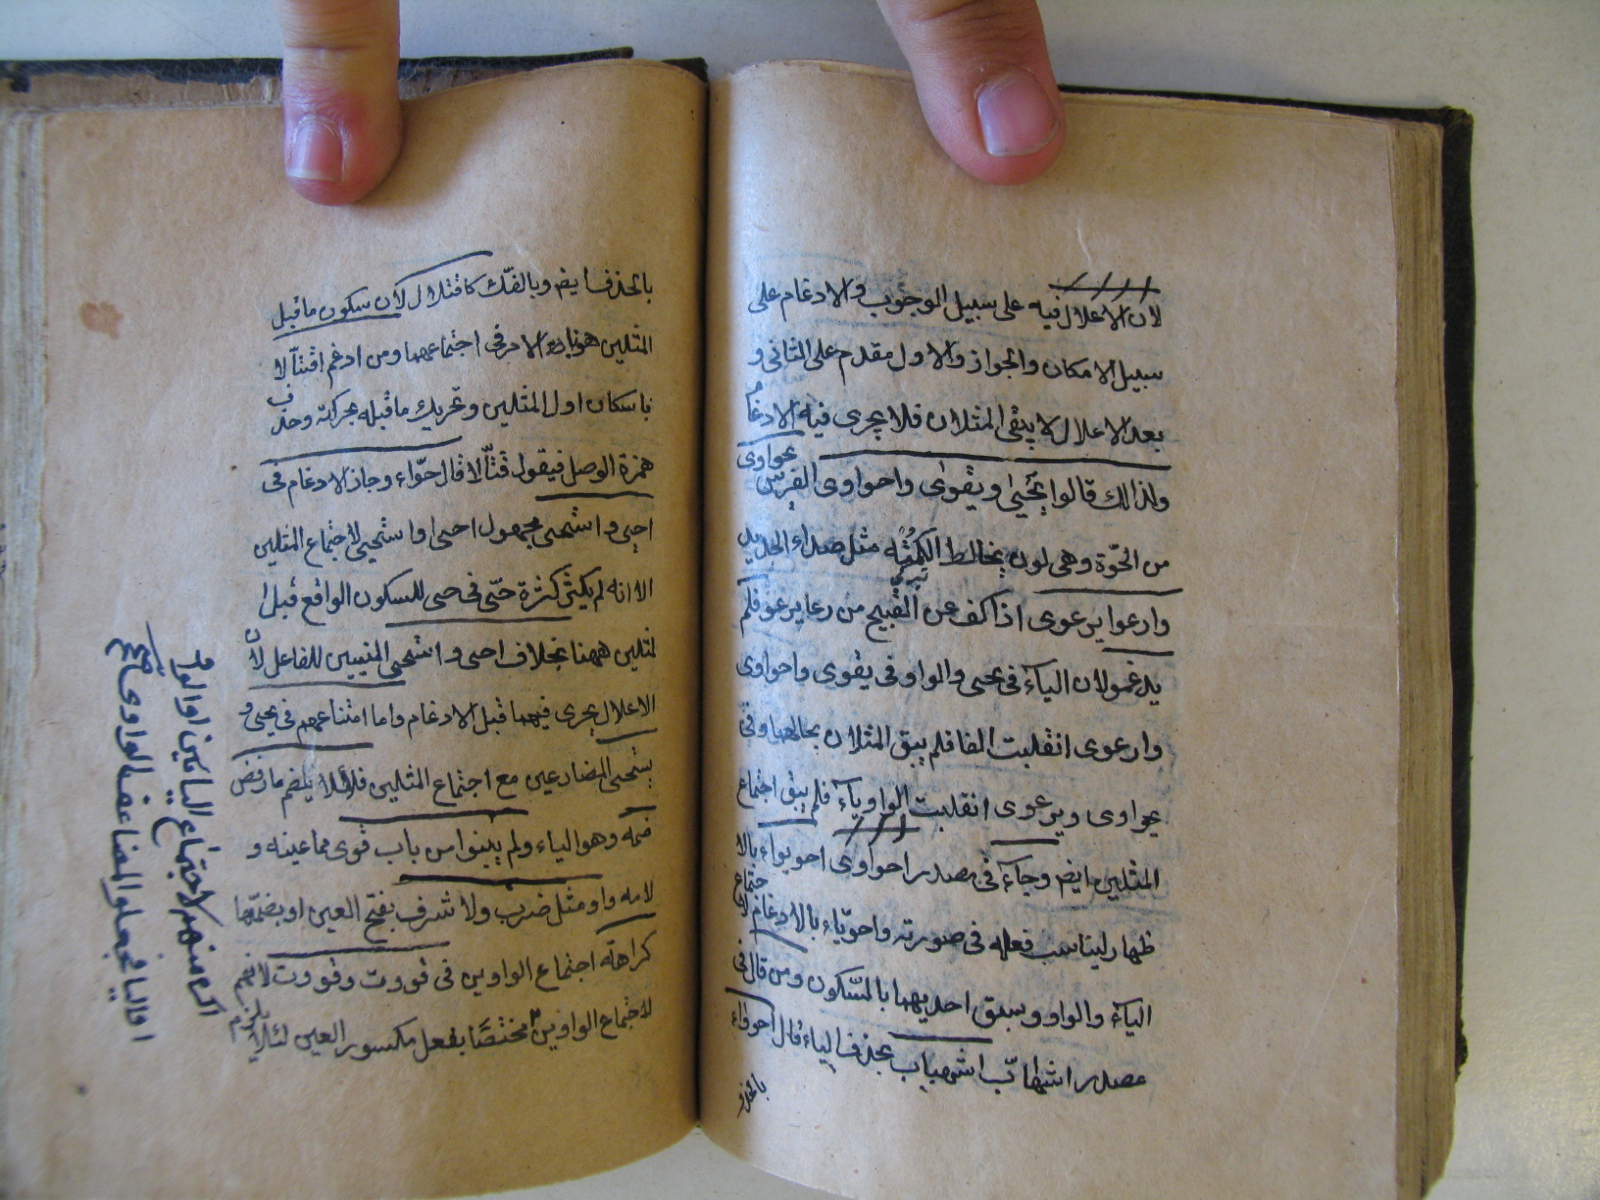 لان الاعلال فيه على سبيل الوجوب والادغام على
سبيل الامكان والجواز والاول مقدم على الثانى و
بعد الاعلال لا يبقى المثلان فلا يجرى فيه الادغام
ولذالك قالوا يحيى ويقوى واحواوى الفرس يحواوى
من الحوّة وهى لون يخالط الكمتة مثل صداء الحديد
وارعوا يرعوى اذا كف عن القبيح من رعا يرعو فلم
يدغمو لان الياء فى يحيى والواو فى يقوى واحواوى
وارعوى انقلبت الفا فلم يبق المثلان بحالهما وفى
يحواوى ويرعوى انقلبت الواو ياء فلم يبق اجتماع
المثلين ايضم وجاء فى مصدر احواوى احويواء بالا
ظهار ليناسب فعله فى صورته واحويّاء بالادغام لاجتماع
الياء والواو وسبق احديهما بالسّكون ومن قال فى
مصدر اشهابّ اشهباب بحذف الياء قال احوواء
بالحذف
بالحذف ايضم وبالفكّ كاقتلال لان سكون ما قبل
المثلين هونا اجتماعهما ومن ادغم اقتتالا
باسكان اول المثلين وتحريك ما قبله بحركته وحذف
همزة الوصل فيقول قتّالا قال حوّاء وجاز الادغام فى
احيى واستحيى مجهول احيى واستحيى لاجتماع المثلين
الا انه لم يكثر كثرة حىّ فى حيى للسكون الواقع قبل ا
لمثلين ههنا بخلاف احيى واستحيى المبنيين للفاعل لان
الاعلال يجرى فيهما قبل الادغام واما امتناعهم فى يحيى و
يستحيى المضارعين مع اجتماع المثلين فلئلا يلضم ما رفض
ضمه وهو الياء ولم يبنوا من باب قوى مما عينه و
لامه واو مثل ضرب ولا شرف بفتح العين او بضمّها
كراهة اجتماع الواوين فى قووت وقووت لانهم
لاجتماع الواوين مختصّا بفعل مكسور العين لئلا يلزم
اكره منهم لاجتماع اليائين او الواو
او اليا فجعلوا المضاعف الواوى صح